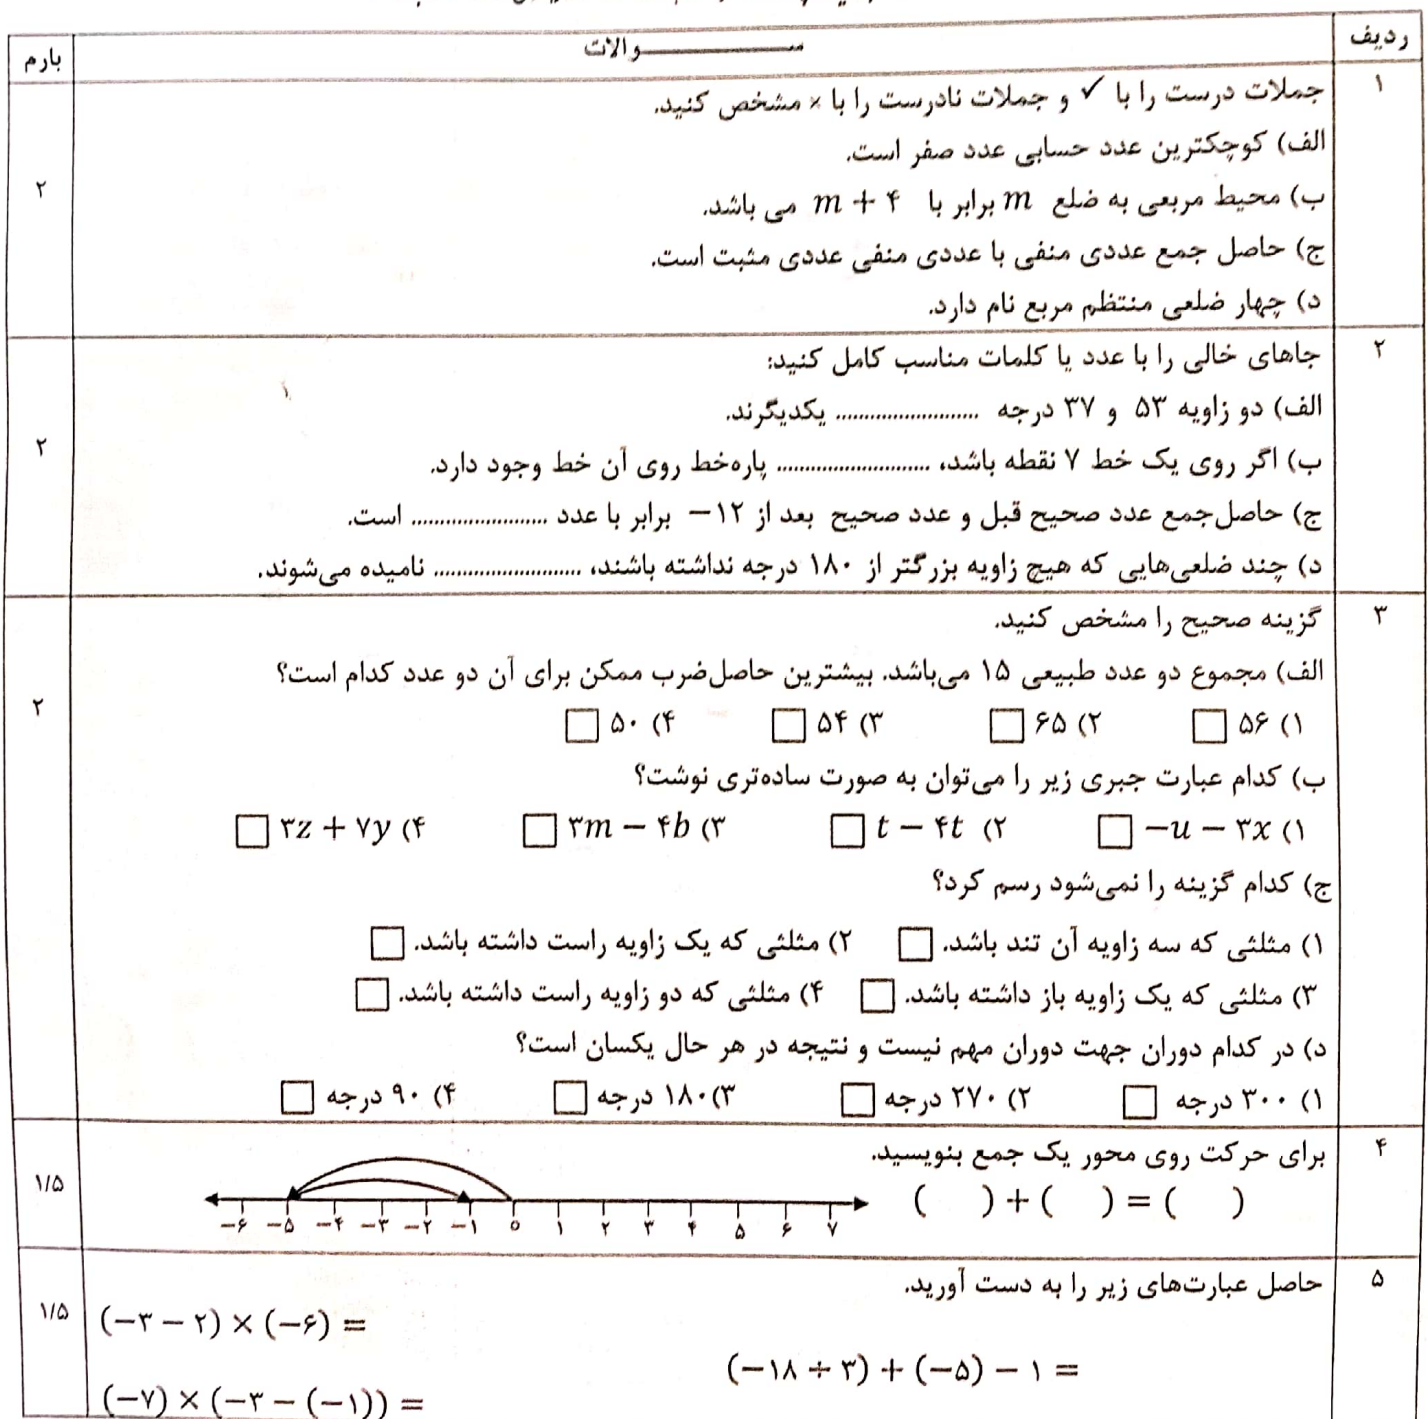 ردیف
ســـــــــوالات
بارم
۱
جملات درست را با ✓ و جملات نادرست را با × مشخص کنید.
الف) کوچکترین عدد حسابی عدد صفر است.
ب) محیط مربعی به ضلع m برابر با m + ۴ می باشد.
ج) حاصل جمع عددی منفی با عددی منفی عددی مثبت است.
د) چهار ضلعی منتظم مربع نام دارد.
۲
۲
جاهای خالی را با عدد یا کلمات مناسب کامل کنید:
الف) دو زاویه ۵۳ و ۳۷ درجه ......................... یکدیگرند.
ب) اگر روی یک خط ۷ نقطه باشد، ........................... پاره‌خط روی آن خط وجود دارد.
ج) حاصل‌جمع عدد صحیح قبل و عدد صحیح بعد از −۱۲ برابر با عدد ........................ است.
د) چند ضلعی‌هایی که هیچ زاویه بزرگتر از ۱۸۰ درجه نداشته باشند، .......................... نامیده می‌شوند.
۲
۳
گزینه صحیح را مشخص کنید.
الف) مجموع دو عدد طبیعی ۱۵ می‌باشد. بیشترین حاصل‌ضرب ممکن برای آن دو عدد کدام است؟
۱) ۵۶ □ ۲) ۶۵ □ ۳) ۵۴ □ ۴) ۵۰ □
ب) کدام عبارت جبری زیر را می‌توان به صورت ساده‌تری نوشت؟
۱) −u − ۳x □ ۲) t − ۴t □ ۳) ۳m − ۴b □ ۴) ۳z + ۷y □
ج) کدام گزینه را نمی‌شود رسم کرد؟
۱) مثلثی که سه زاویه آن تند باشد. □ ۲) مثلثی که یک زاویه راست داشته باشد. □
۳) مثلثی که یک زاویه باز داشته باشد. □ ۴) مثلثی که دو زاویه راست داشته باشد. □
د) در کدام دوران جهت دوران مهم نیست و نتیجه در هر حال یکسان است؟
۱) ۳۰۰ درجه □ ۲) ۲۷۰ درجه □ ۳) ۱۸۰ درجه □ ۴) ۹۰ درجه □
۲
۴
برای حرکت روی محور یک جمع بنویسید.
(   ) + (   ) = (   )
−۶ −۵ −۴ −۳ −۲ −۱ ۰ ۱ ۲ ۳ ۴ ۵ ۶ ۷
۱/۵
۵
حاصل عبارت‌های زیر را به دست آورید.
(−۳ − ۲) × (−۶) =
(−۱۸ ÷ ۳) + (−۵) − ۱ =
(−۷) × (−۳ − (−۱)) =
۱/۵